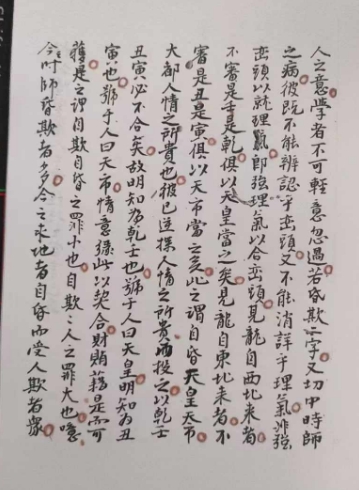 人之意學者不可輕意忽過若昏欺二字又切中時師
之病彼既不能辨認乎巒頭又不能消詳于理氣非強
巒頭以就理氣即強理氣以合巒頭見龍自西北來者
不審是壬是乾俱以天皇當之矣見龍自東北來者不
審是丑是寅俱以天市當之矣此之謂自昏天皇天市
大都人情之所貴也彼已逆探人情之所貴而投之以乾壬
丑寅必不合矣故明知為乾壬也號于人曰天皇明知為丑
寅也號于人曰天市情意緣此以契合財賄藉是而可
獲是之謂自欺自昏之罪小也自欺欺人之罪大也噫
今時師昏欺者多今之求地者自昏而受人欺者衆